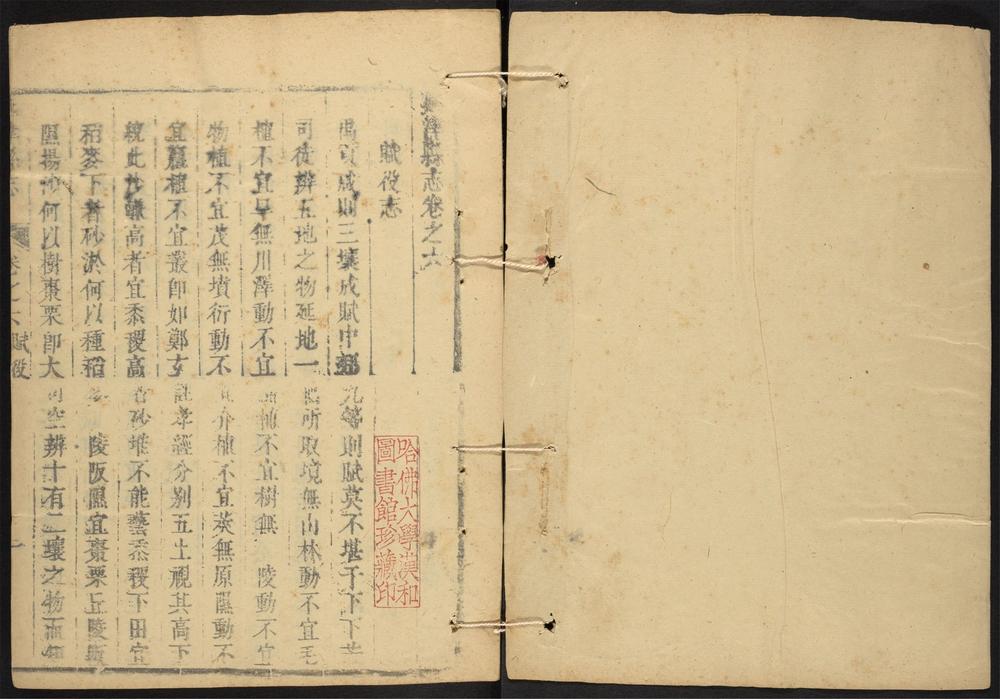 志卷之六
賦役志
則三壤成賦中
九等則賦莫不堪于下下
司徒辨五地之物延地一
所取境無山林動不宜毛
植不宜早無川澤動不宜
植不宜樹無 陵動不宜
物植不宜茂無墳衍動不
介植不宜莢無原隰動不
宜臝植不宜叢卽如鄭玄
註孝經分别五土視其高下
高者宜黍稷高
砂堆不能藝黍稷下田宜
稻麥下者砂淤何以種稻
陵阪隰宜棗栗丘陵
隰揚沙何以樹棗栗卽大
辨十有二壤之物而
卷之六 賦役
一
哈佛大學漢和
圖書館珍藏印